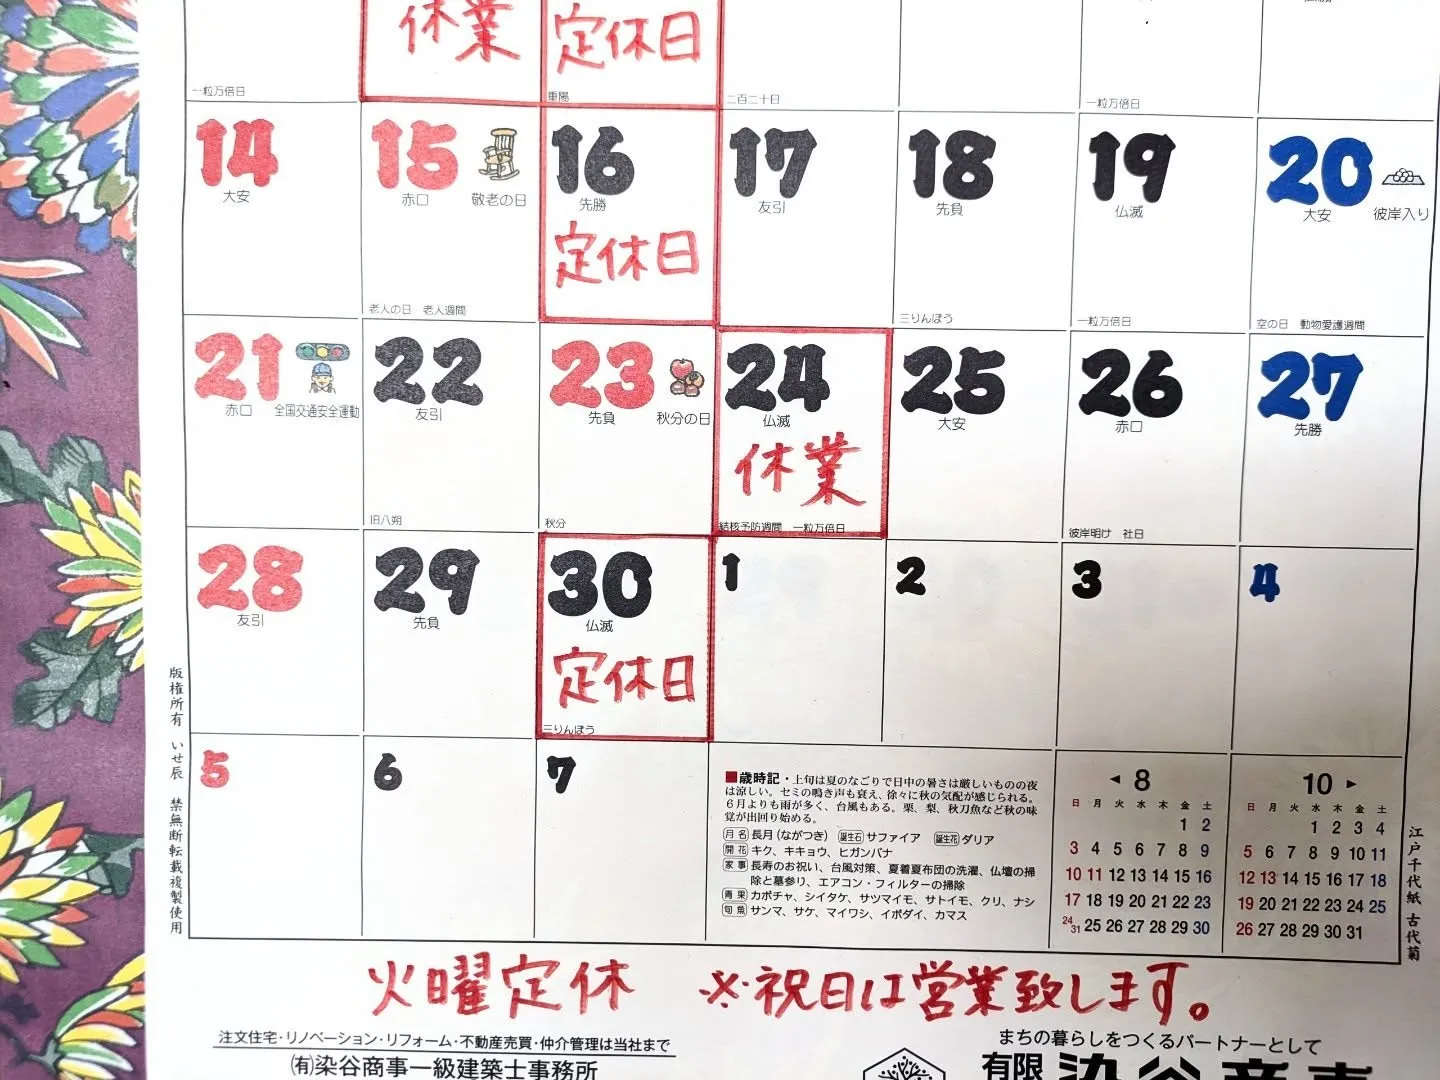 休業 定休日
一粒万倍日 重陽 二百二十日 一粒万倍日
14 15 16 17 18 19 20
大安 赤口 敬老の日 先勝 友引 先負 仏滅 大安 彼岸入り
定休日
老人の日 老人週間 三りんぼう 一粒万倍日 空の日 動物愛護週間
21 22 23 24 25 26 27
赤口 全国交通安全運動 友引 先負 秋分の日 仏滅 大安 赤口 先勝
休業
旧八朔 秋分 結核予防週間 一粒万倍日 彼岸明け 社日
28 29 30 1 2 3 4
友引 先負 仏滅
定休日
三りんぼう
5 6 7
■歳時記・上旬は夏のなごりで日中の暑さは厳しいものの夜
は涼しい。セミの鳴き声も衰え、徐々に秋の気配が感じられる。
6月よりも雨が多く、台風もある。栗、梨、秋刀魚など秋の味
覚が出回り始める。
月名 長月(ながつき) 誕生石 サファイア 誕生花 ダリア
開花 キク、キキョウ、ヒガンバナ
家事 長寿のお祝い、台風対策、夏着夏布団の洗濯、仏壇の掃
除と墓参り、エアコン・フィルターの掃除
青果 カボチャ、シイタケ、サツマイモ、サトイモ、クリ、ナシ
旬魚 サンマ、サケ、マイワシ、イボダイ、カマス
◀ 8
日 月 火 水 木 金 土
1 2
3 4 5 6 7 8 9
10 11 12 13 14 15 16
17 18 19 20 21 22 23
24/31 25 26 27 28 29 30
10 ▶
日 月 火 水 木 金 土
1 2 3 4
5 6 7 8 9 10 11
12 13 14 15 16 17 18
19 20 21 22 23 24 25
26 27 28 29 30 31
版権所有 いせ辰 禁無断転載複製使用
江戸千代紙 古代菊
火曜定休 ※祝日は営業致します。
注文住宅・リノベーション・リフォーム・不動産売買・仲介管理は当社まで
(有)染谷商事一級建築士事務所
まちの暮らしをつくるパートナーとして
有限 染谷商事